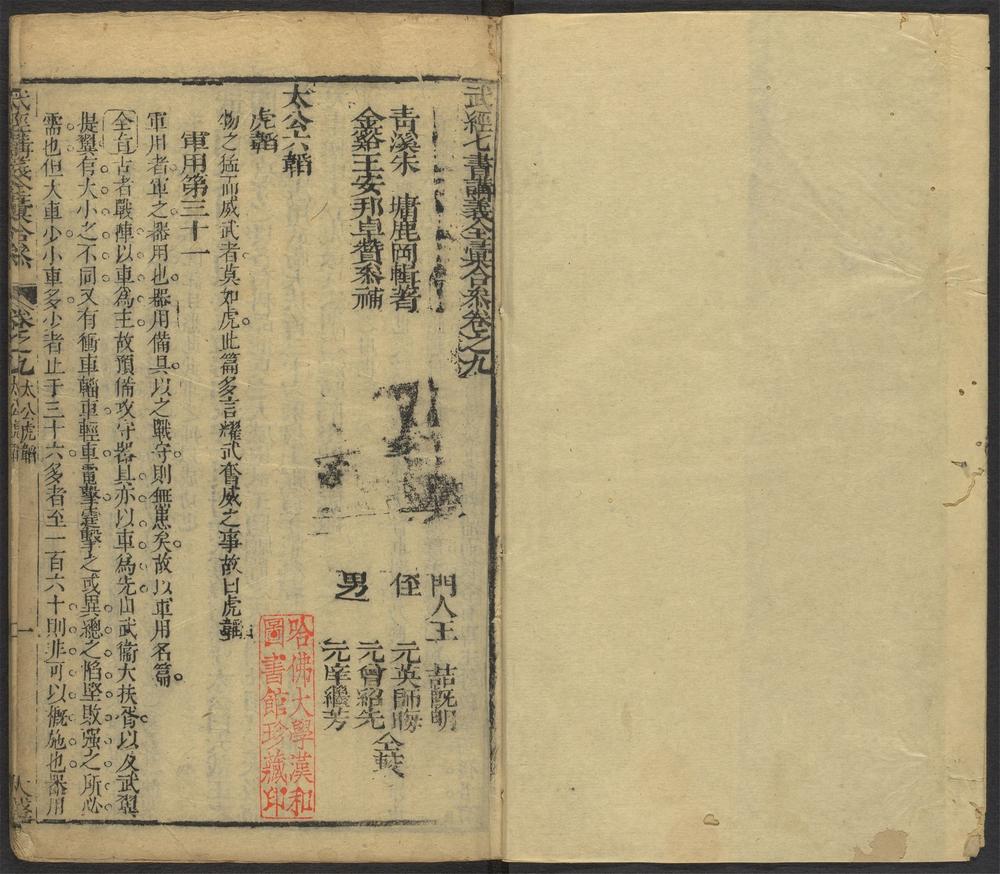 武經七書講義全彙合參卷之九
青溪朱　墉鹿岡輯著
金谿王安邦卓贊參補
門人王　喆既明
侄　元英師晦
元曾紹先
男　元庠繼芳
仝較
太公六韜
虎韜
物之猛而威武者莫如虎此篇多言耀武奮威之事故曰虎韜
軍用第三十一
軍用者軍之器用也器用備具以之戰守則無患矣故以軍用名篇
全旨古者戰陣以車為主故預備攻守器具亦以車為先山武衛大扶胥以及武翼
提翼信大小之不同又有衝車輜車輕車電擊霆擊之或異總之陷堅敗強之所必
需也但大車少小車多少者止于三十六多者至一百六十則非可以慨施也器用
武經講義全彙合參
卷之九
太公虎韜
一
哈佛大學漢和
圖書館珍藏印